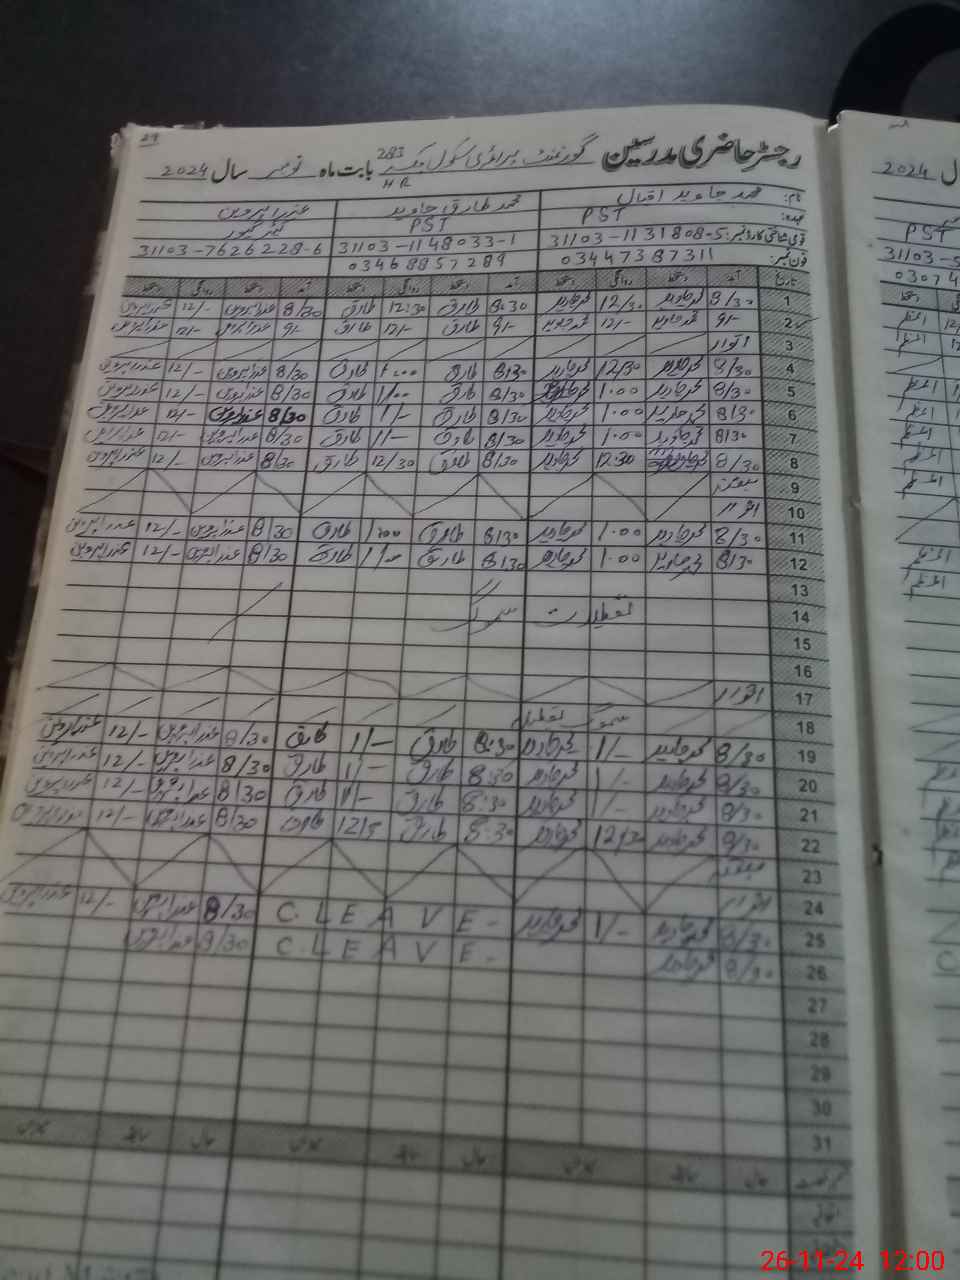 29
رجسٹر حاضری مدرسین گورنمنٹ پرائمری سکول چک 283 HR بابت ماہ نومبر سال 2024
نام: محمد جاوید اقبال محمد طارق جاوید عذرا پروین
عہدہ: PST PST کیئر گیور
قومی شناختی کارڈ نمبر: 31103-1131808-5 31103-1148033-1 31103-7626228-6
فون نمبر: 03447387311 03468857289
تاریخ آمد دستخط روانگی دستخط آمد دستخط روانگی دستخط آمد دستخط روانگی دستخط
1 8/30 محمد جاوید 12/30 محمد جاوید 8:30 طارق 12:30 طارق 8/30 عذرا پروین 12/- عذرا پروین
2 9/- محمد جاوید 12/- محمد جاوید 9/- طارق 12/- طارق 9/- عذرا پروین 12/- عذرا پروین
3 اتوار
4 8/30 محمد جاوید 12/30 محمد جاوید 8/30 طارق طارق 8/30 عذرا پروین 12/- عذرا پروین
5 8/30 محمد جاوید 1:00 محمد جاوید 8/30 طارق 1/00 طارق 8/30 عذرا پروین 12/- عذرا پروین
6 8/30 محمد جاوید 1:00 محمد جاوید 8/30 طارق 1/- طارق 8/30 عذرا پروین 12/- عذرا پروین
7 8/30 محمد جاوید 1:00 محمد جاوید 8/30 طارق 1/- طارق 8/30 عذرا پروین 12/- عذرا پروین
8 8/30 محمد جاوید 12:30 محمد جاوید 8/30 طارق 12/30 طارق 8/30 عذرا پروین 12/- عذرا پروین
9 ہفتہ
10 اتوار
11 8/30 محمد جاوید 1:00 محمد جاوید 8/30 طارق 1/00 طارق 8/30 عذرا پروین 12/- عذرا پروین
12 8/30 محمد جاوید 1:00 محمد جاوید 8/30 طارق 1/00 طارق 8/30 عذرا پروین 12/- عذرا پروین
13
14 تعطیلات سموگ
15
16
17 اتوار
18 سموگ تعطیلات
19 8/30 محمد جاوید 1/- محمد جاوید 8:30 طارق 1/- طارق 8/30 عذرا پروین 12/- عذرا پروین
20 8/30 محمد جاوید 1/- محمد جاوید 8:30 طارق 1/- طارق 8/30 عذرا پروین 12/- عذرا پروین
21 8/30 محمد جاوید 1/- محمد جاوید 8:30 طارق 1/- طارق 8/30 عذرا پروین 12/- عذرا پروین
22 8/30 محمد جاوید محمد جاوید 8:30 طارق طارق 8/30 عذرا پروین 12/- عذرا پروین
23 ہفتہ
24 اتوار
25 8/30 محمد جاوید 1/- محمد جاوید C. LEAVE - 8/30 عذرا پروین 12/- عذرا پروین
26 8/30 محمد جاوید C. LEAVE - 8/30 عذرا پروین
27
28
29
30
31
حال سابقہ میزان حال سابقہ میزان حال سابقہ میزان
2024
PST
26-11-24 12:00